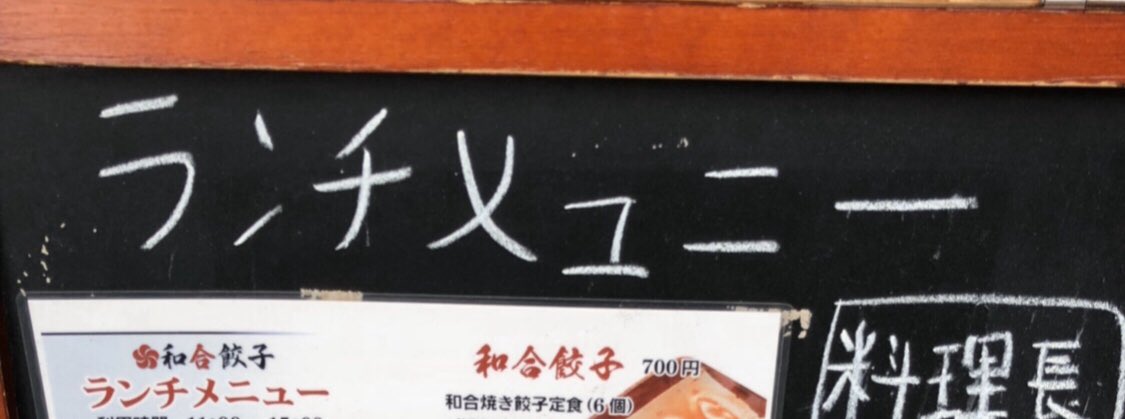 ランチメュニー
和合餃子
ランチメニュー
和合餃子 700円
和合焼き餃子定食(6個)
料理長